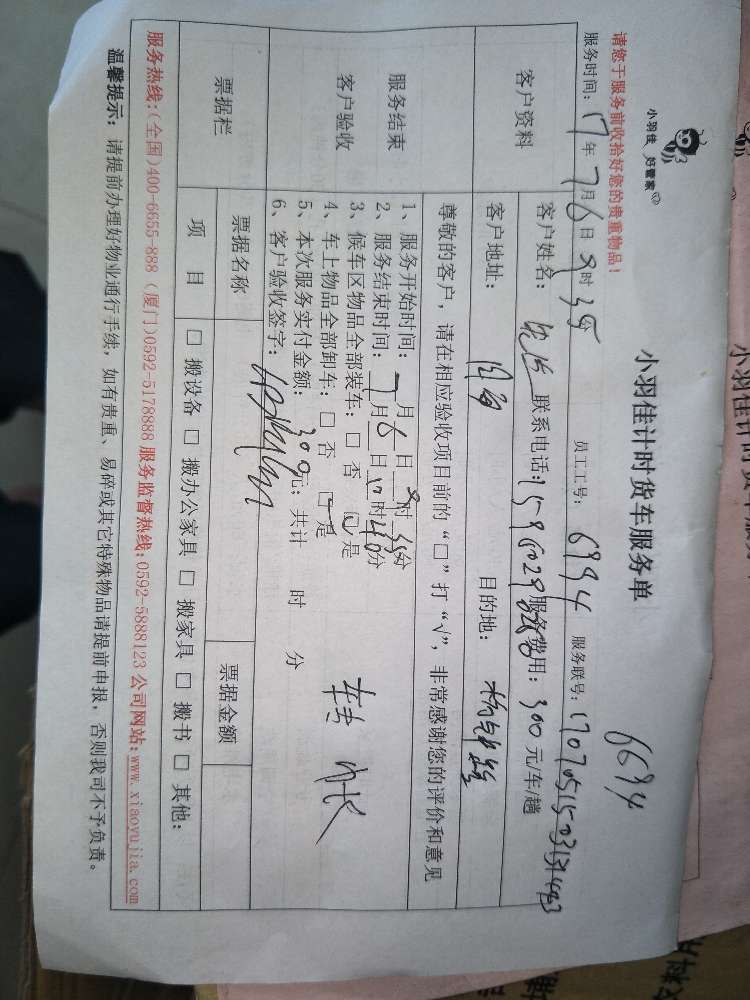 小羽佳 好管家
小羽佳计时货车服务单
6694
请您于服务前收拾好您的贵重物品！
服务时间：17年7月6日9时35分 员工工号：6994 服务联号：
客户资料
客户姓名： 联系电话： 服务费用：300元/车/趟
客户地址： 目的地：
服务结束
客户验收
尊敬的客户，请在相应验收项目前的“□”打“√”，非常感谢您的评价和意见
1、服务开始时间： 月 日9时35分
2、服务结束时间：7月6日10时40分
3、候车区物品全部装车：□ 否 □ 是
4、车上物品全部卸车：□ 否 □ 是
5、本次服务实付金额：300元；共计 时 分
6、客户验收签字：
票据栏
票据名称 票据金额
项 目 □ 搬设备 □ 搬办公家具 □ 搬家具 □ 搬书 □ 其他：
服务热线：(全国)400-6655-888 (厦门)0592-5178888 服务监督热线：0592-5888123 公司网站：www.xiaoyujia.com
温馨提示：请提前办理好物业通行手续，如有贵重、易碎或其它特殊物品请提前申报，否则我司不予负责。